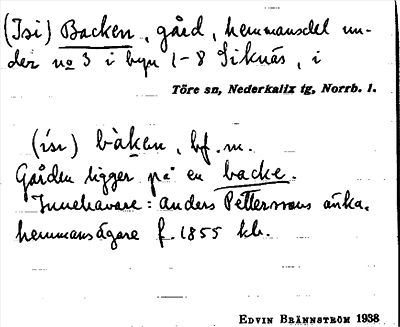 (Isi) Backen, gård, hemmansdel un-
der no 3 i byn 1-8 Siknäs, i
Töre sn, Nederkalix tg, Norrb. l.
(ísı) bàken, bf. m.
Gården ligger på en backe.
Innehavare: Anders Petterssons änka,
hemmansägare f. 1855 kh.
EDVIN BRÄNNSTRÖM 1938